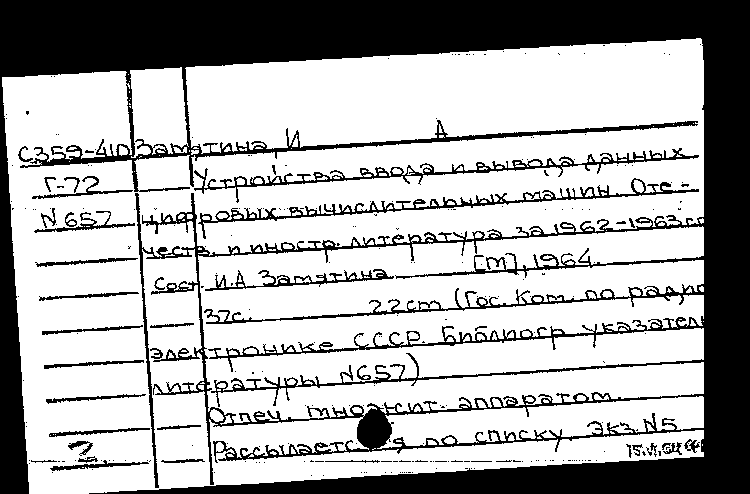 С359-410 Замятина, И А
Г-72 Устройства ввода и вывода данных
N 657 цифровых вычислительных машин. Оте-
честв. и иностр. литература за 1962-1963гг
Сост. И.А. Замятина [М], 1964.
37с. 22cm (Гос. Ком. по радио
электронике СССР. Библиогр указатель
литературы N657)
Отпеч. множит. аппаратом.
2 Рассылается по списку. Экз. N5
15.VI.64